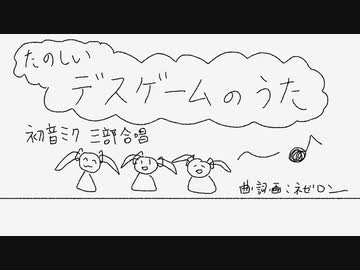 たのしい
デスゲームのうた
初音ミク 三部合唱
曲詞画:ネガロン